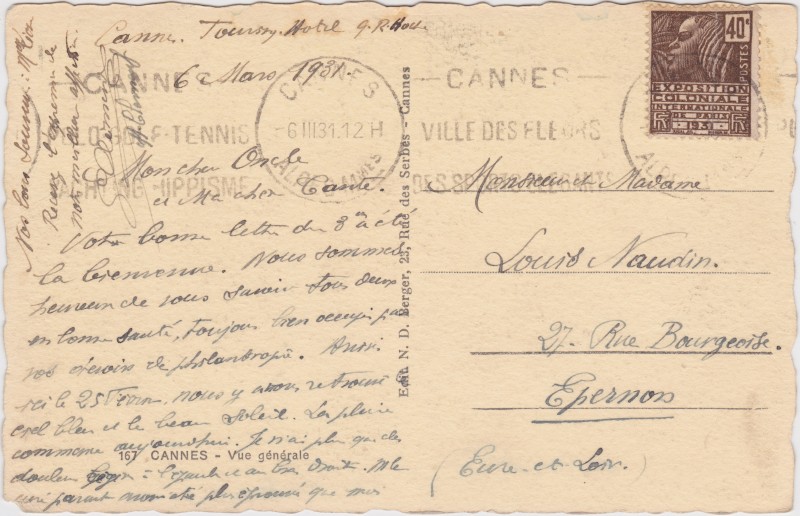 Cannes. Touring-Hotel 9. R. Hoche
6 Mars 1931.
Mon cher Oncle
et Ma chère Tante.
Votre bonne lettre du 3 Ct a été
la bienvenue. Nous sommes
heureux de vous savoir tous deux
en bonne santé, toujours bien occupés par
vos devoirs de philantropie. Arrivés
ici le 25 Févr. nous y avons retrouvé
ciel bleu et le beau soleil. La pluie
commence aujourd'hui. Je n'ai plus que des
douleurs à l'épaule et au bras droit. Mle
avoir été plus éprouvée que moi
Nos bons
Recevez l'expression de
notre meilleure affection
167 CANNES - Vue générale
Edit. N. D. Berger, 23, Rue des Serbes - Cannes
CANNES
6 III 31. 12 H
ALPES MARMES
CANNES
POLO-GOLF-TENNIS
YACHTING-HIPPISME
CANNES
VILLE DES FLEURS
DES SPORTS ELEGANTS
40c
POSTES
EXPOSITION
COLONIALE
INTERNATIONALE
DE PARIS
1931
RF RF
Monsieur et Madame
Louis Naudin.
27. Rue Bourgeoise.
Epernon
(Eure-et-Loir.)